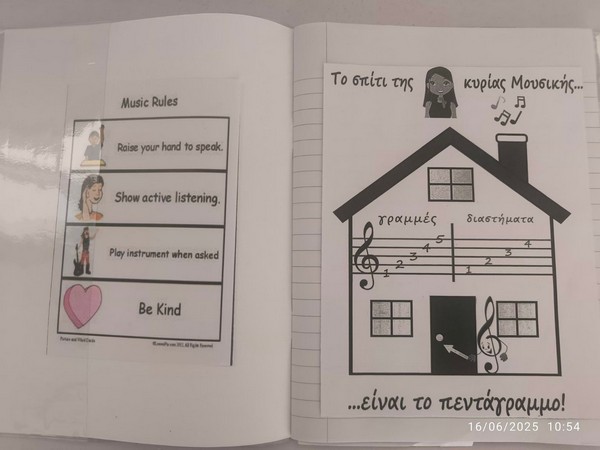 Music Rules
Raise your hand to speak.
Show active listening.
Play instrument when asked
Be Kind
Το σπίτι της κυρίας Μουσικής...
γραμμές διαστήματα
1 2 3 4 5 1 2 3 4
...είναι το πεντάγραμμο!
16/06/2025 10:54